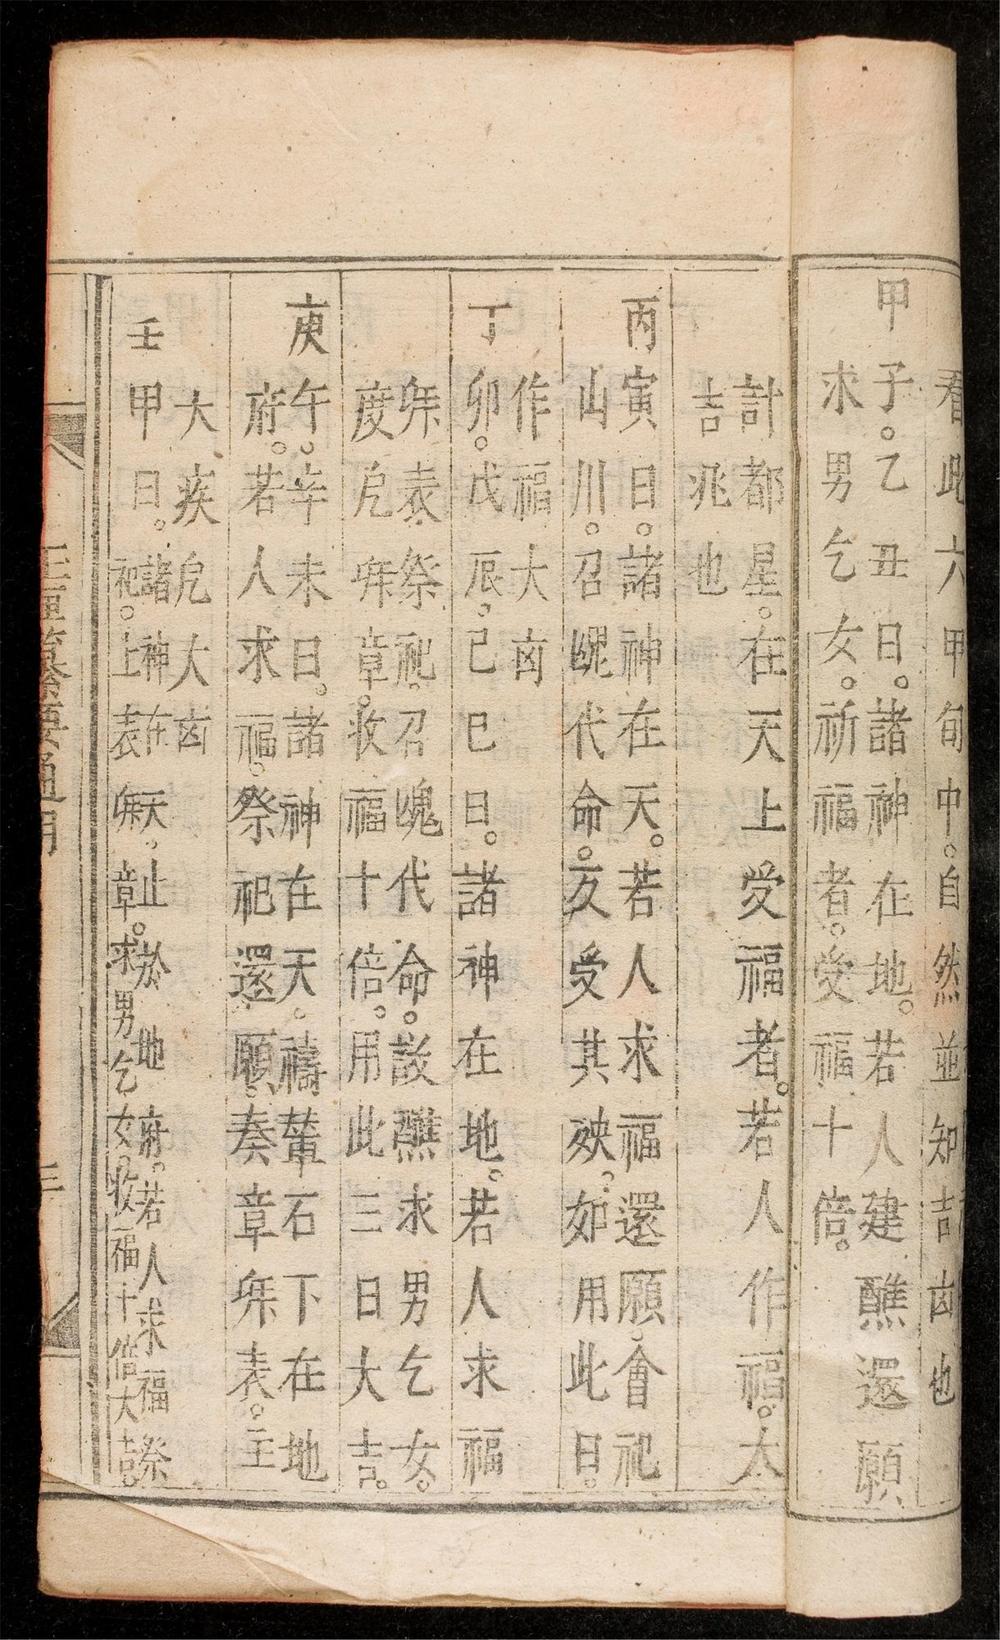 看此六甲旬中。自然並知吉凶也
甲子。乙丑日。諸神在地。若人建醮還願
求男乞女。祈福者。受福十倍。
計都星。在天上受福者。若人作福。大
吉兆也
丙寅日。諸神在天。若人求福還願。會祀
山川。召䰟代命。反受其殃。如用此日。
作福大凶
丁卯。戊辰。己巳日。諸神在地。若人求福
表祭祀。召䰟代命。設醮求男乞女。
度厄章。收福十倍。用此三日大吉。
庚午。辛未日。諸神在天。禱輦石下在地
府。若人求福。祭祀還願。奏章表。主
大疾厄大凶
壬甲日。諸神在天。止於地府。若人求福祭
祀。上表章。求男乞女。收福十倍大吉。
玉匣纂要通用